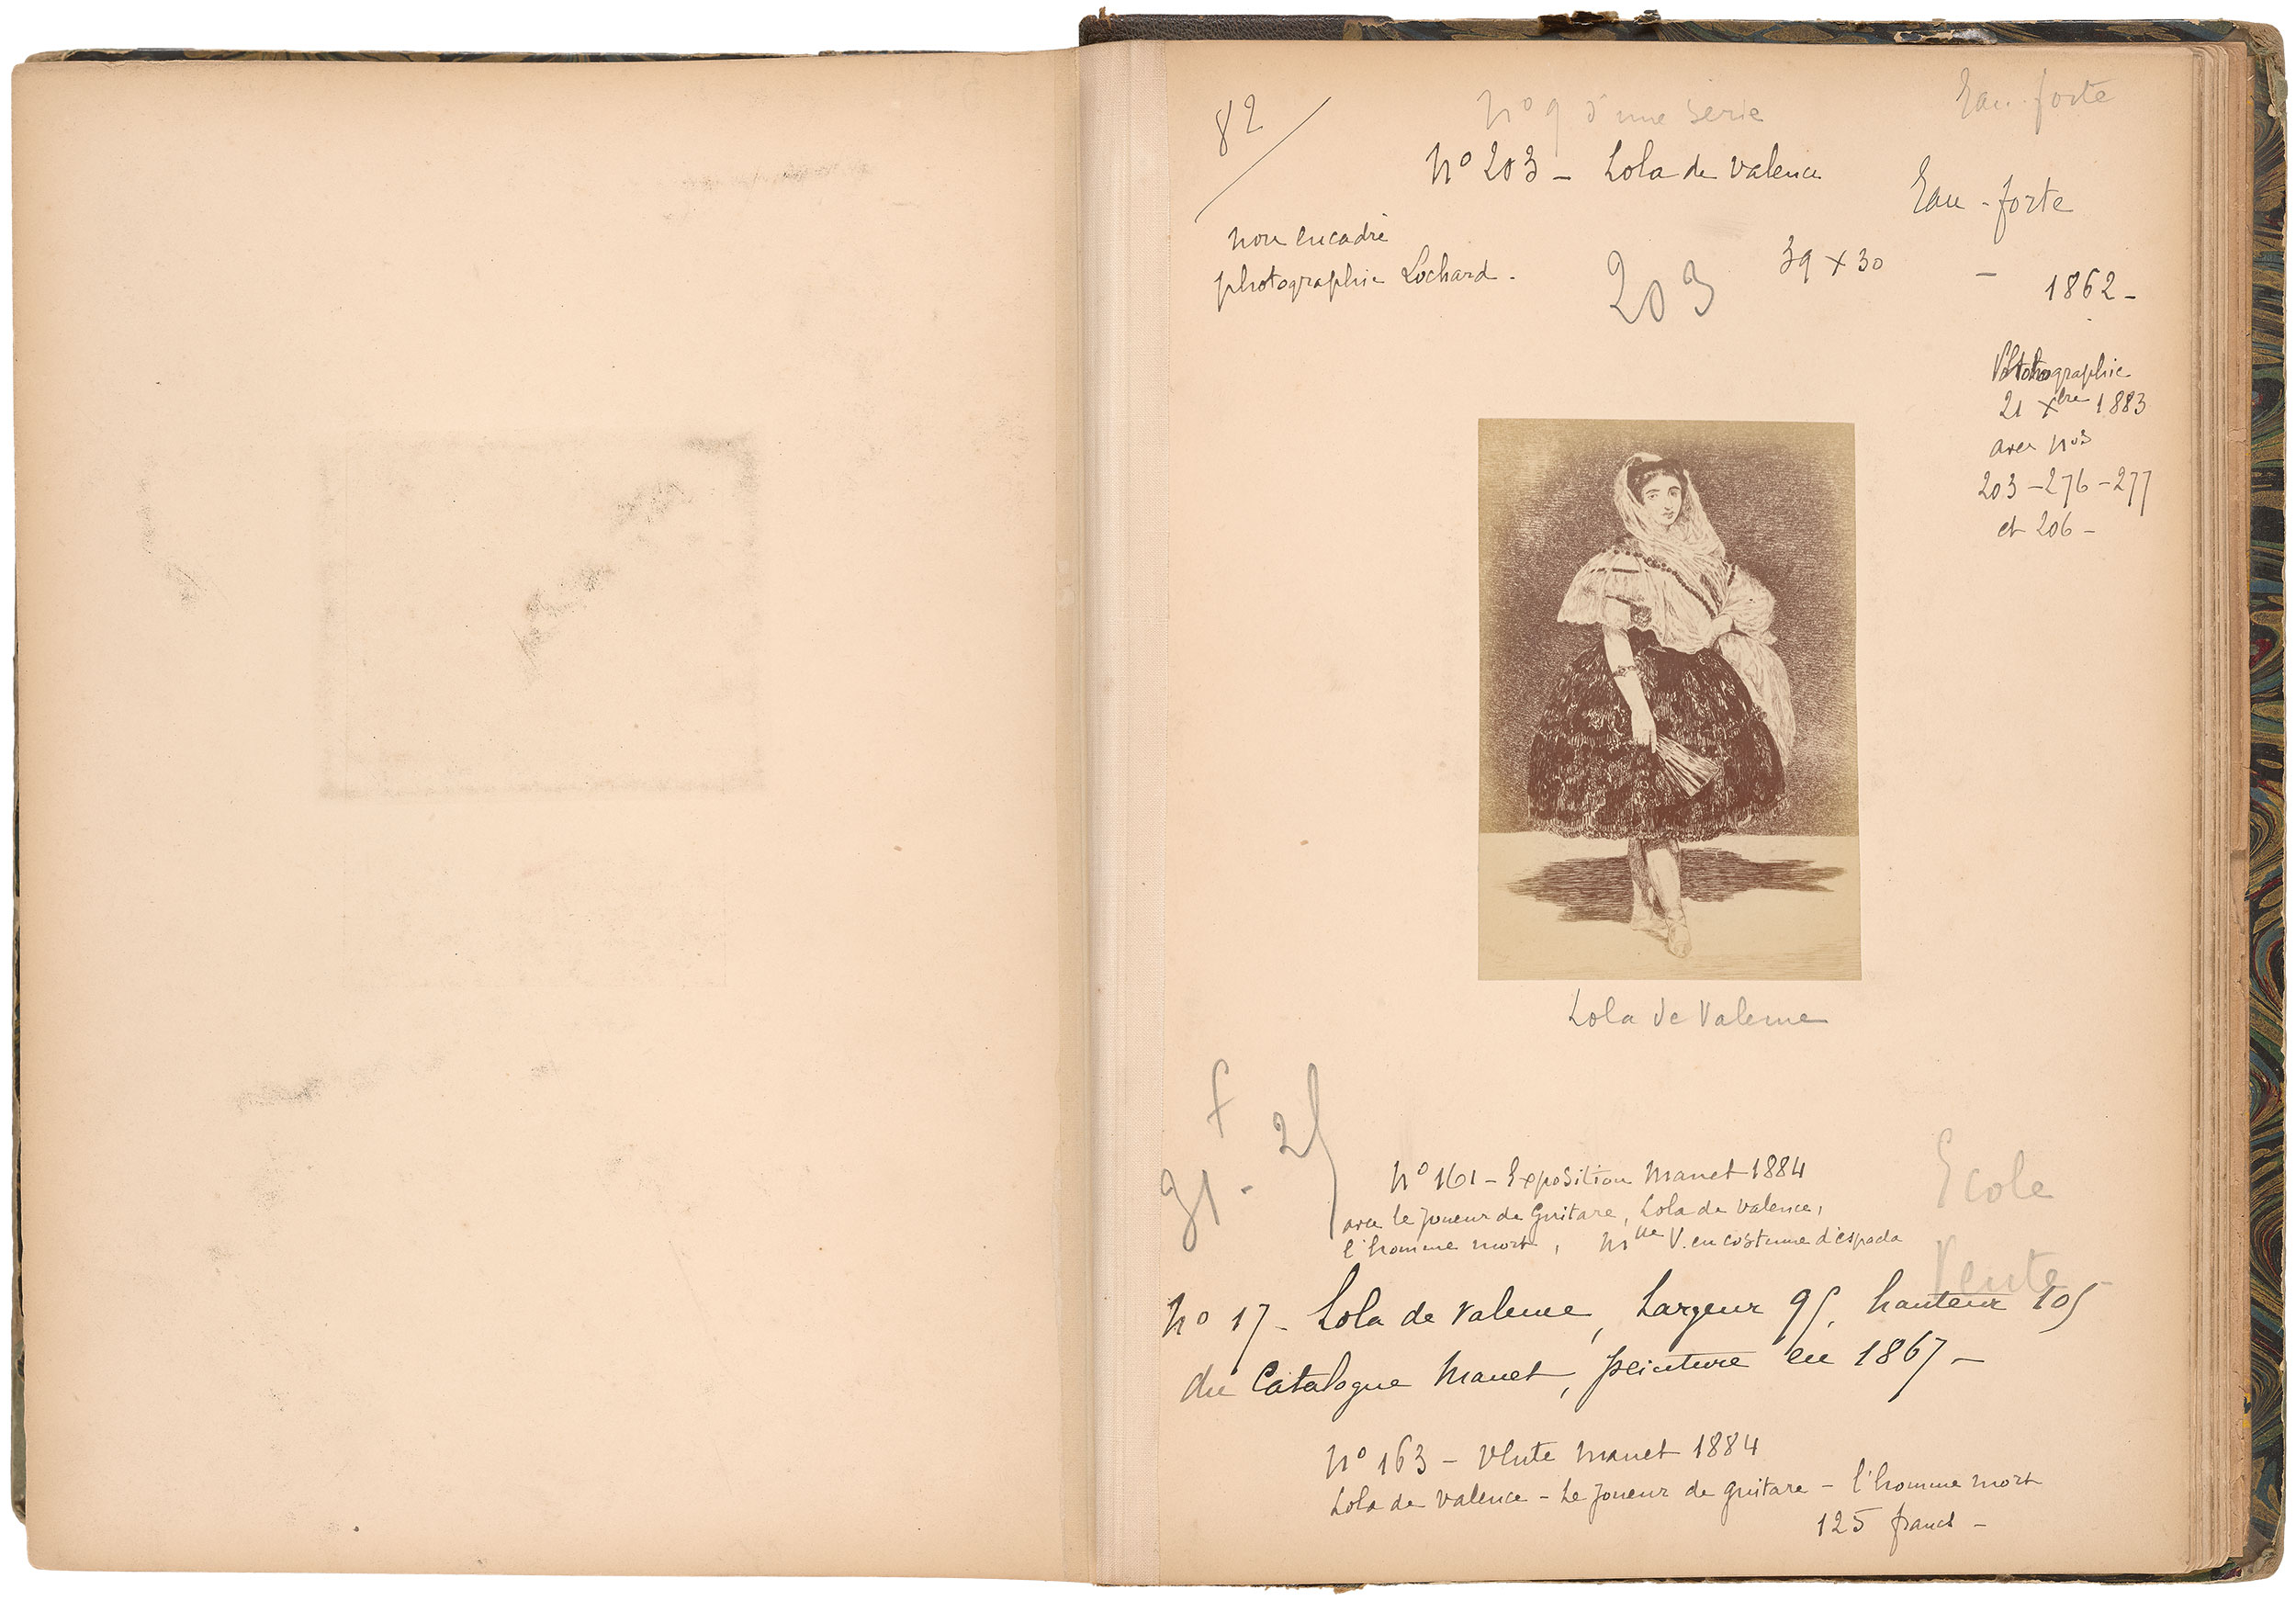 82
No 9 d'une serie
Eau-forte
No 203 - Lola de Valence
Eau-forte
non encadré
photographie Lochard.
203
39 x 30
- 1862 -
Photographie
21 Xbre 1883
avec nos
203 - 276 - 277
et 206 -
Lola de Valence
f
91 - 25
No 161 - Exposition Manet 1884
avec le joueur de Guitare, Lola de Valence,
l'homme mort, Mlle V. en costume d'espada
Ecole
Vente
No 17 - Lola de Valence, Largeur 95, hauteur 105
du Catalogue Manet, peinture en 1867 -
No 163 - Vente Manet 1884
Lola de Valence - Le joueur de guitare - l'homme mort
125 francs -